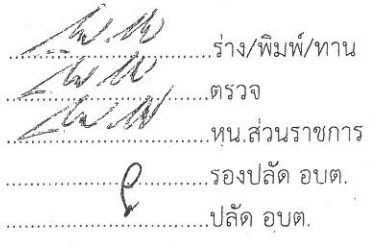 ร่าง/พิมพ์/ทาน
ตรวจ
หน.ส่วนราชการ
รองปลัด อบต.
ปลัด อบต.